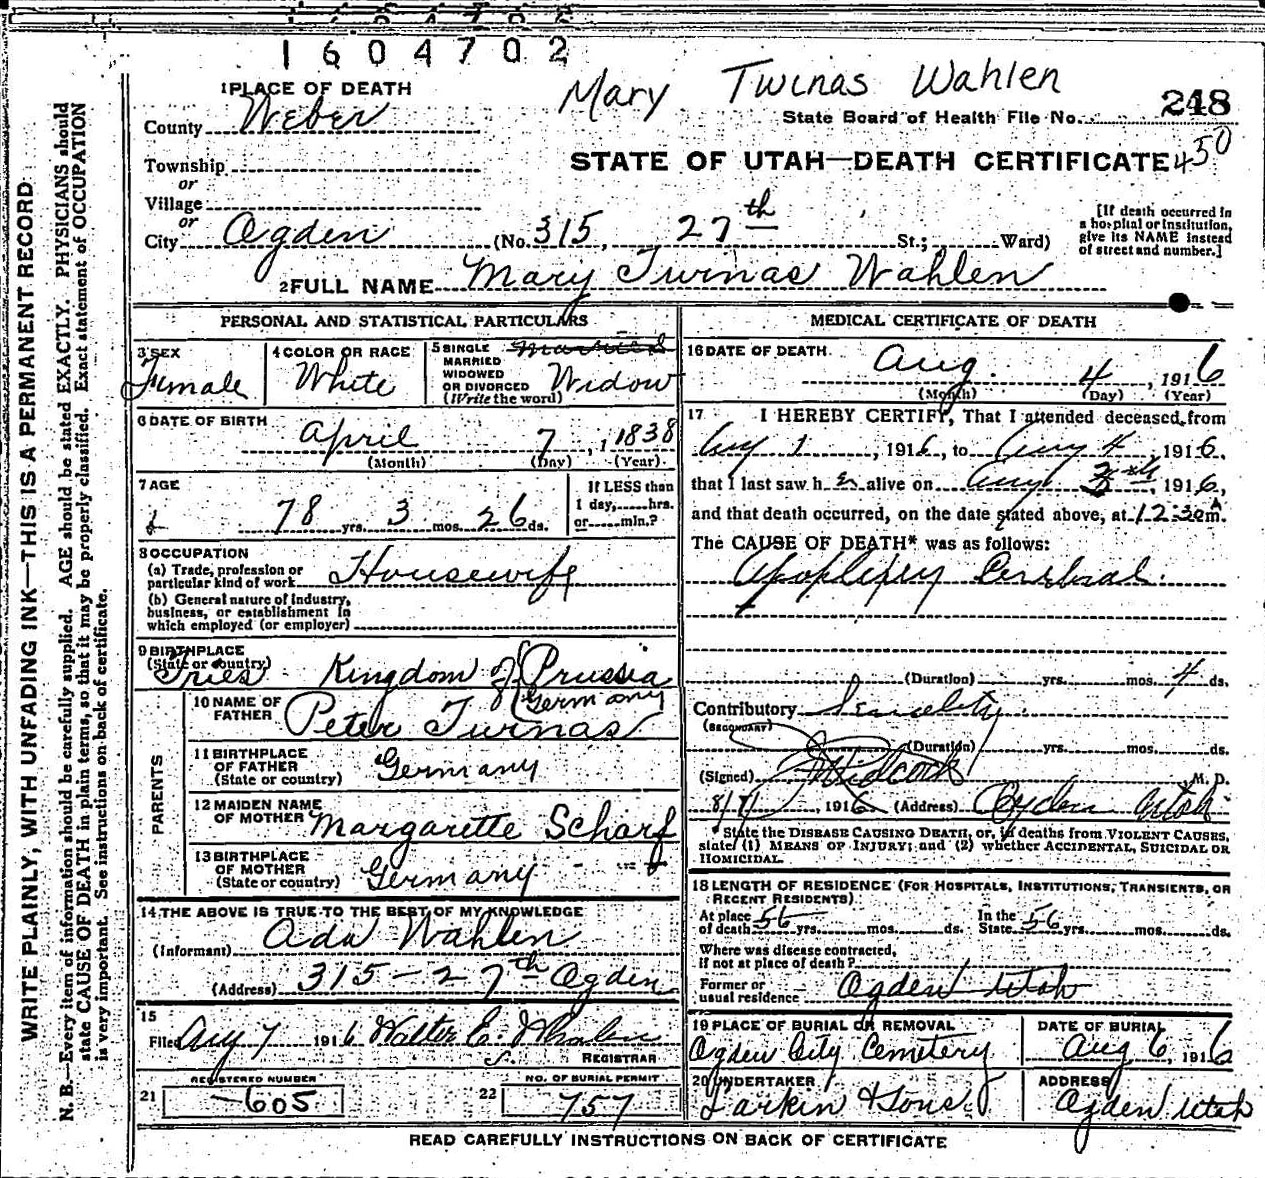 1604702
Mary Twinas Wahlen
1 PLACE OF DEATH
County Weber
State Board of Health File No. 248
Township
or
STATE OF UTAH—DEATH CERTIFICATE 450
Village
or
City Ogden (No. 315, 27th St.; Ward)
[If death occurred in a hospital or institution, give its NAME instead of street and number.]
2 FULL NAME Mary Twinas Wahlen
PERSONAL AND STATISTICAL PARTICULARS
3 SEX
Female
4 COLOR OR RACE
White
5 SINGLE MARRIED WIDOWED OR DIVORCED (Write the word)
Married Widow
6 DATE OF BIRTH
April 7, 1838
(Month) (Day) (Year)
7 AGE
78 yrs. 3 mos. 26 ds.
If LESS than 1 day, hrs. or min.?
8 OCCUPATION
(a) Trade, profession or particular kind of work Housewife
(b) General nature of industry, business, or establishment in which employed (or employer)
9 BIRTHPLACE
(State or country)
Tries Kingdom of Prussia
Germany
PARENTS
10 NAME OF FATHER Peter Twinas
11 BIRTHPLACE OF FATHER (State or country) Germany
12 MAIDEN NAME OF MOTHER Margarette Scharf
13 BIRTHPLACE OF MOTHER (State or country) Germany
14 THE ABOVE IS TRUE TO THE BEST OF MY KNOWLEDGE
(Informant) Ada Wahlen
(Address) 315-27th Ogden
15
Filed Aug 7 1916 Walter E. Whalen
REGISTRAR
21 REGISTERED NUMBER
605
22 NO. OF BURIAL PERMIT
757
MEDICAL CERTIFICATE OF DEATH
16 DATE OF DEATH
Aug. 4, 1916
(Month) (Day) (Year)
17 I HEREBY CERTIFY, That I attended deceased from
Aug 1, 1916, to Aug 4 1916,
that I last saw h er alive on Aug 3rd, 1916,
and that death occurred, on the date stated above, at 12:30 A m.
The CAUSE OF DEATH* was as follows:
Apoplexy Cerebral.
(Duration) yrs. mos. 4 ds.
Contributory Senility.
(SECONDARY)
(Duration) yrs. mos. ds.
(Signed) M. D.
1916 (Address) Ogden Utah
* State the DISEASE CAUSING DEATH, or, in deaths from VIOLENT CAUSES, state (1) MEANS OF INJURY; and (2) whether ACCIDENTAL, SUICIDAL OR HOMICIDAL.
18 LENGTH OF RESIDENCE (FOR HOSPITALS, INSTITUTIONS, TRANSIENTS, OR RECENT RESIDENTS)
At place of death 56 yrs. mos. ds. In the State 56 yrs. mos. ds.
Where was disease contracted, if not at place of death?
Former or usual residence Ogden Utah
19 PLACE OF BURIAL OR REMOVAL
Ogden City Cemetery
DATE OF BURIAL
Aug 6, 1916
20 UNDERTAKER
Larkin & Sons
ADDRESS
Ogden Utah
READ CAREFULLY INSTRUCTIONS ON BACK OF CERTIFICATE
WRITE PLAINLY, WITH UNFADING INK—THIS IS A PERMANENT RECORD
N. B.—Every item of information should be carefully supplied. AGE should be stated EXACTLY. PHYSICIANS should
state CAUSE OF DEATH in plain terms, so that it may be properly classified. Exact statement of OCCUPATION
is very important. See instructions on back of certificate.